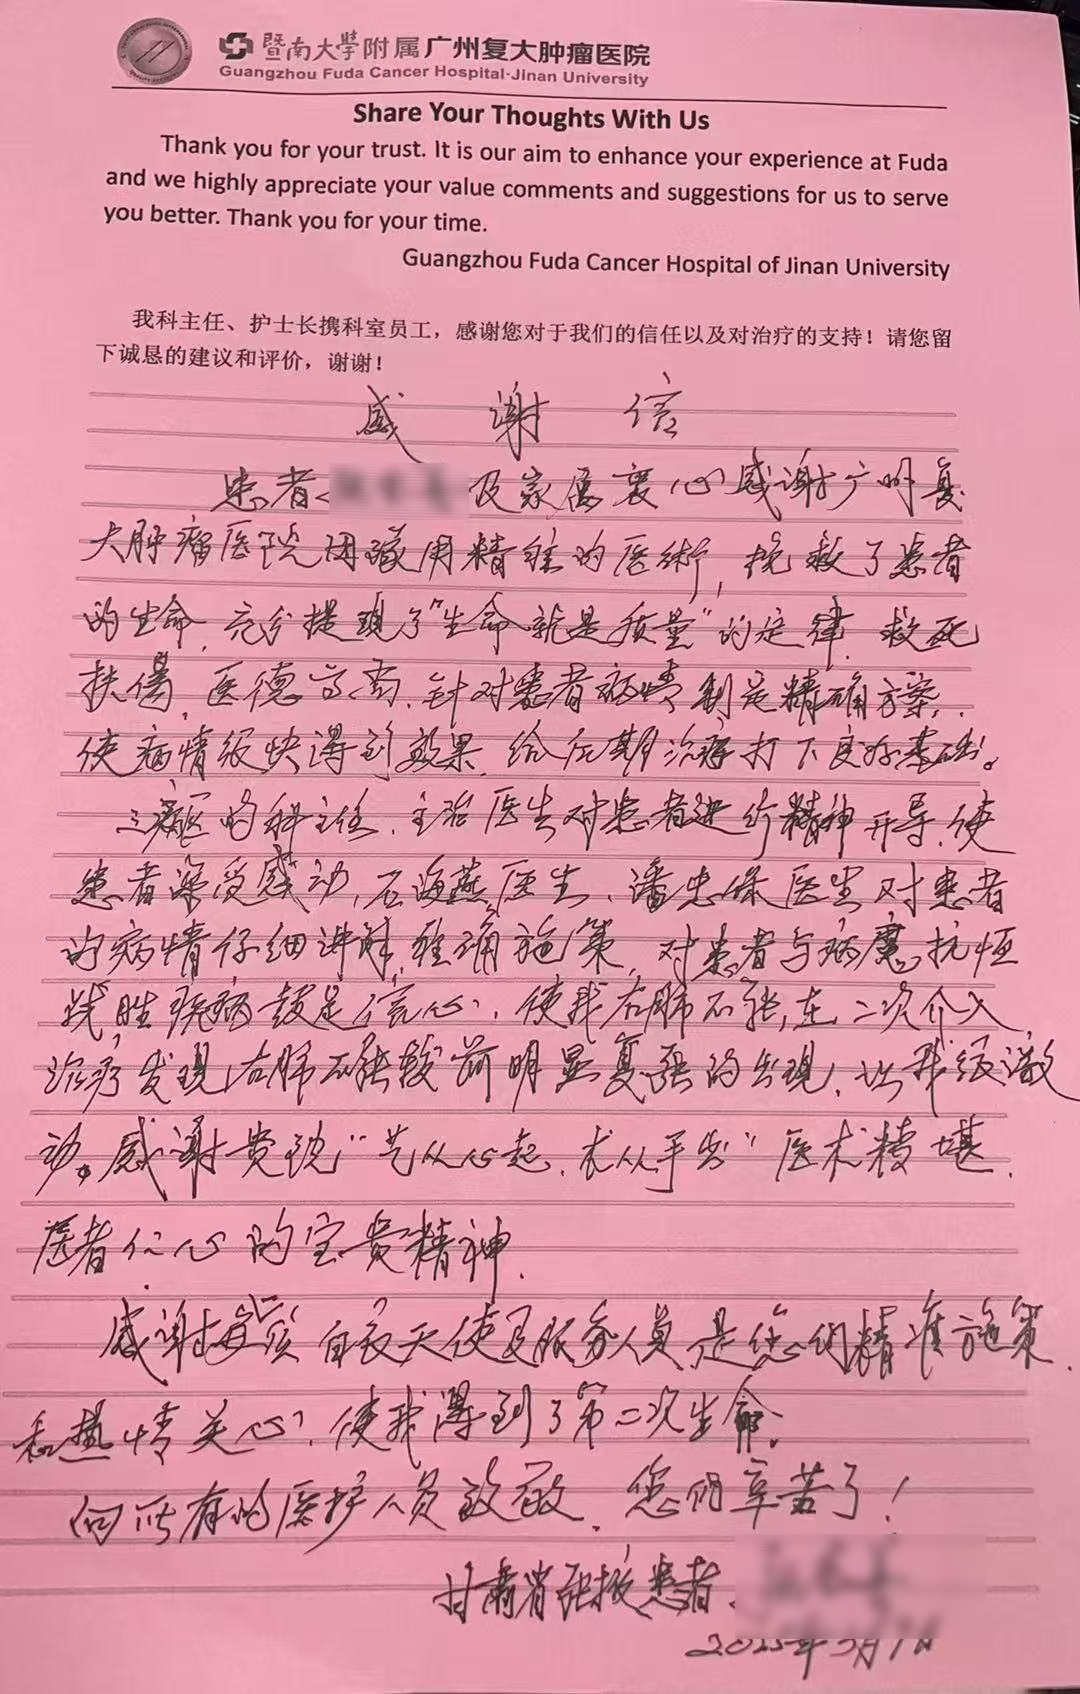 暨南大学附属广州复大肿瘤医院
Guangzhou Fuda Cancer Hospital·Jinan University
Share Your Thoughts With Us
Thank you for your trust. It is our aim to enhance your experience at Fuda
and we highly appreciate your value comments and suggestions for us to serve
you better. Thank you for your time.
Guangzhou Fuda Cancer Hospital of Jinan University
我科主任、护士长携科室员工，感谢您对于我们的信任以及对治疗的支持！请您留
下诚恳的建议和评价，谢谢！
感谢信
患者 及家属衷心感谢广州复
大肿瘤医院团队用精准的医術，挽救了患者
的生命，充分提现了"生命就是质量"的定律，救死
扶傷，医德高尚，针对患者病情制定精确方案，
使病情很快得到效果，给后期治疗打下良好基础。
三病区的科主任、主治医生对患者进行精神开导，使
患者深受感动，石海燕医生、潘忠保医生对患者
的病情仔细讲解，准确施策，对患者与病魔抗恒
战胜疾病鼓足信心，使我右肺不张，在二次介入
治疗发现右肺不张较前明显复张的出现，让我很激
动。感谢贵院"艺从心起，术从手出"医术精堪，
医者仁心的宝贵精神。
感谢 白衣天使及服务人员，是您们精准施策，
和热情关心，使我得到了第二次生命。
向所有的医护人员致敬，您们辛苦了！
甘肃省张掖患者